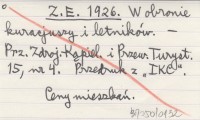 Z. E. 1926. W obronie
kuracjuszy i letników. —
Prz. Zdroj.-Kąpiel. i Przew. Turyst.
15, nr 4. Przedruk z „IKC".
Ceny mieszkań.